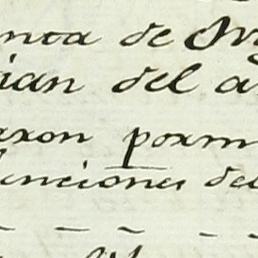 nta de
ian del a
axon porm
enciones del